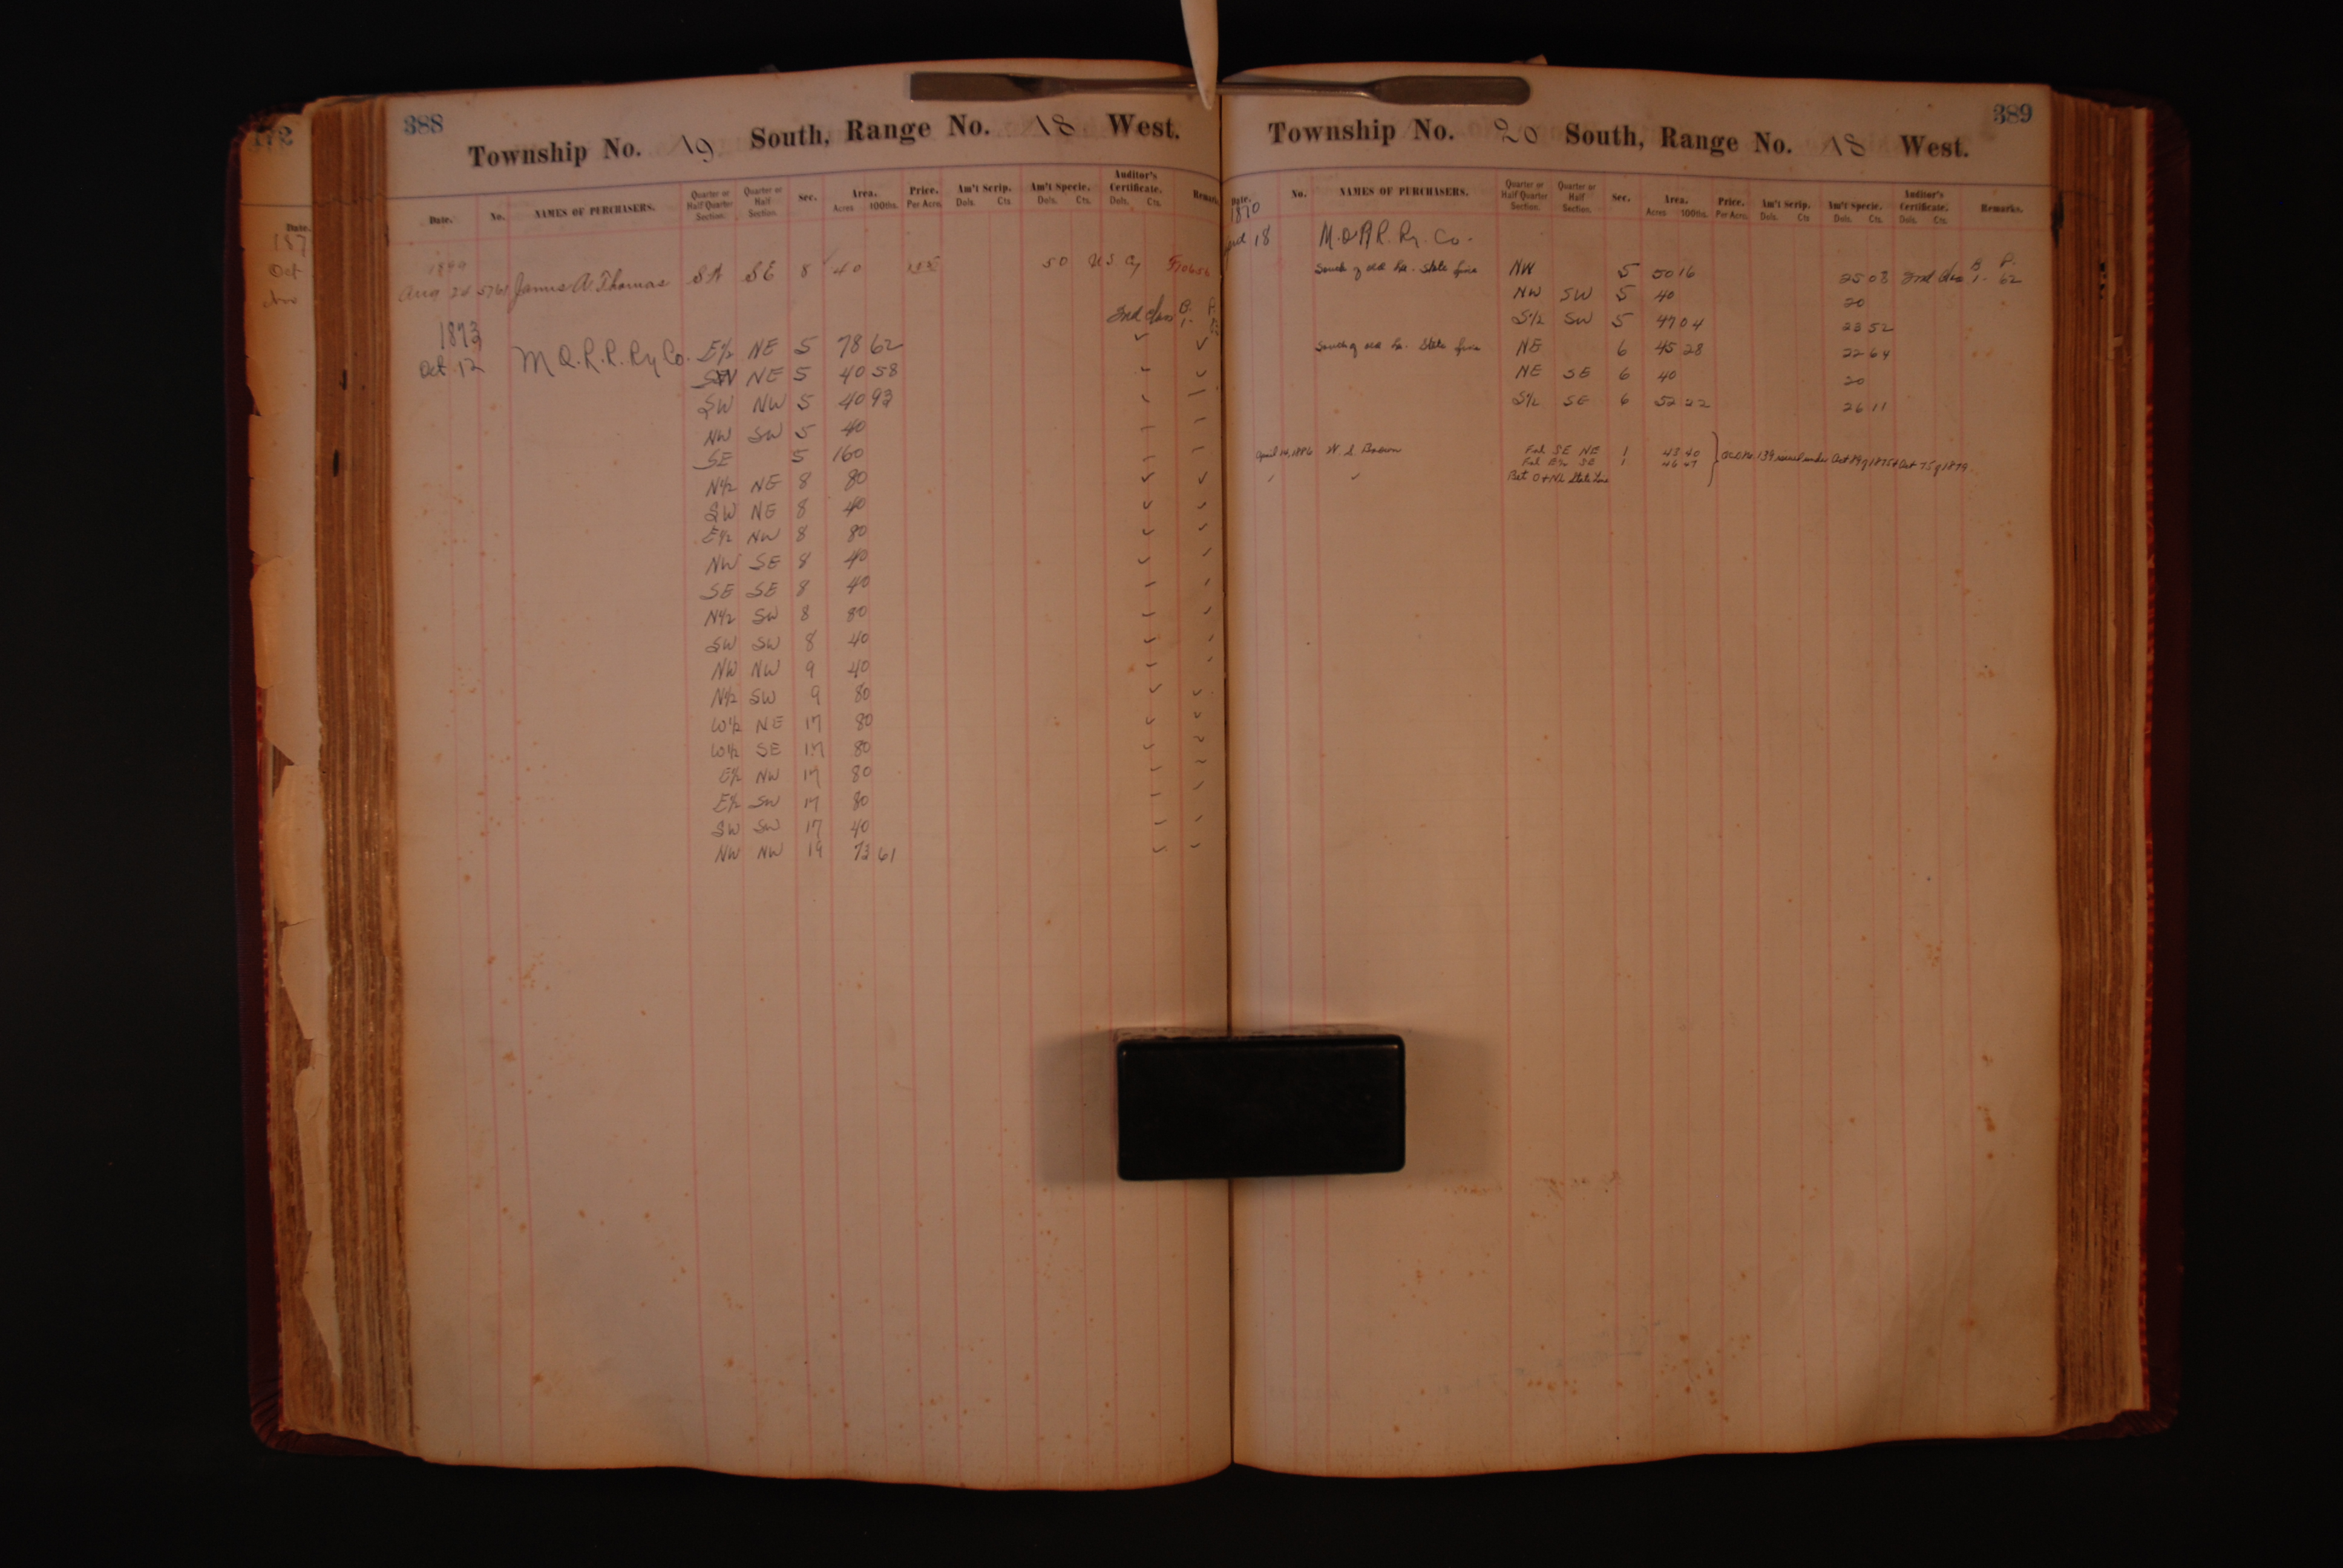 172
Date.
187
Oct
388
Township No. 19 South, Range No. 18 West.
Date. No. NAMES OF PURCHASERS. Quarter or Half Quarter Section. Quarter or Half Section. Sec. Area. Acres 100ths. Price. Per Acre. Am't Scrip. Dols. Cts. Am't Specie. Dols. Cts. Auditor's Certificate. Dols. Cts. Remarks.
1899
Aug 24 5761 James A. Thomas SW SE 8 40 1.25 50 US Cy
2nd Class B. P.
1873
Oct. 12 M O. & R. R. Ry Co. E½ NE 5 78 62 ✓ ✓
SW NE 5 40 58
SW NW 5 40 93
NW SW 5 40
SE 5 160
N½ NE 8 80
SW NE 8 40
E½ NW 8 80
NW SE 8 40
SE SE 8 40
N½ SW 8 80
SW SW 8 40
NW NW 9 40
N½ SW 9 80
W½ NE 17 80
W½ SE 17 80
E½ NW 17 80
E½ SW 17 80
SW SW 17 40
NW NW 19 73 61
389
Township No. 20 South, Range No. 18 West.
Date. No. NAMES OF PURCHASERS. Quarter or Half Quarter Section. Quarter or Half Section. Sec. Area. Acres 100ths. Price. Per Acre. Am't Scrip. Dols. Cts. Am't Specie. Dols. Cts. Auditor's Certificate. Dols. Cts. Remarks.
1870
18 M. O & R R. Ry. Co.
South of old La. State line NW 5 50 16 25 08 2nd Class B 1. P. 62
NW SW 5 40 20
S½ SW 5 47 04 23 52
South of old La. State line NE 6 45 28 22 64
NE SE 6 40 20
S½ SE 6 52 22 26 11
April 14, 1886 W. S. Brown Frl SE NE 1 43 40
Frl E½ SE 1 46 47 No. 139 issued under Act 89 of 1875 & Act 75 of 1879
Bet O & N La State Line